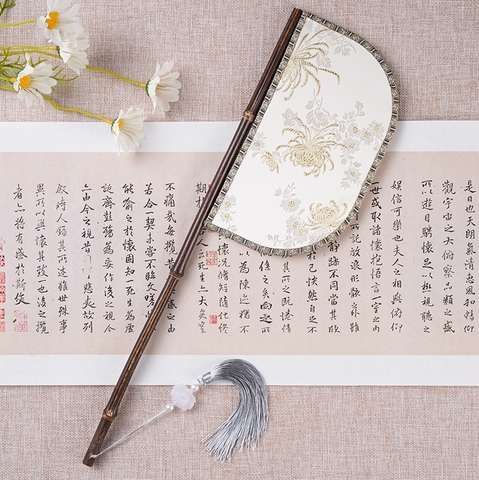 是日也天朗氣清惠風和暢仰
觀宇宙之大俯察品類之盛
所以遊目騁懷足以極視聽之
娛信可樂也夫人之相與俯仰
世或取諸懷抱悟言一室之
所託放浪形骸之外雖
靜躁不同當其欣
於己怏然自足不
其所之既惓情
係之矣
為陳迹猶不
懷況脩短隨化終
期於
死生亦大矣豈
不痛哉每攬昔
感之由
若合一契未嘗不臨文嗟悼
能喻之於懷固知一死生為虛
誕齊彭殤為妄作後之視今
亦由今之視昔悲夫故列
敘時人錄其所述雖世殊事
異所以興懷其致一也後之攬
者亦將有感於斯文